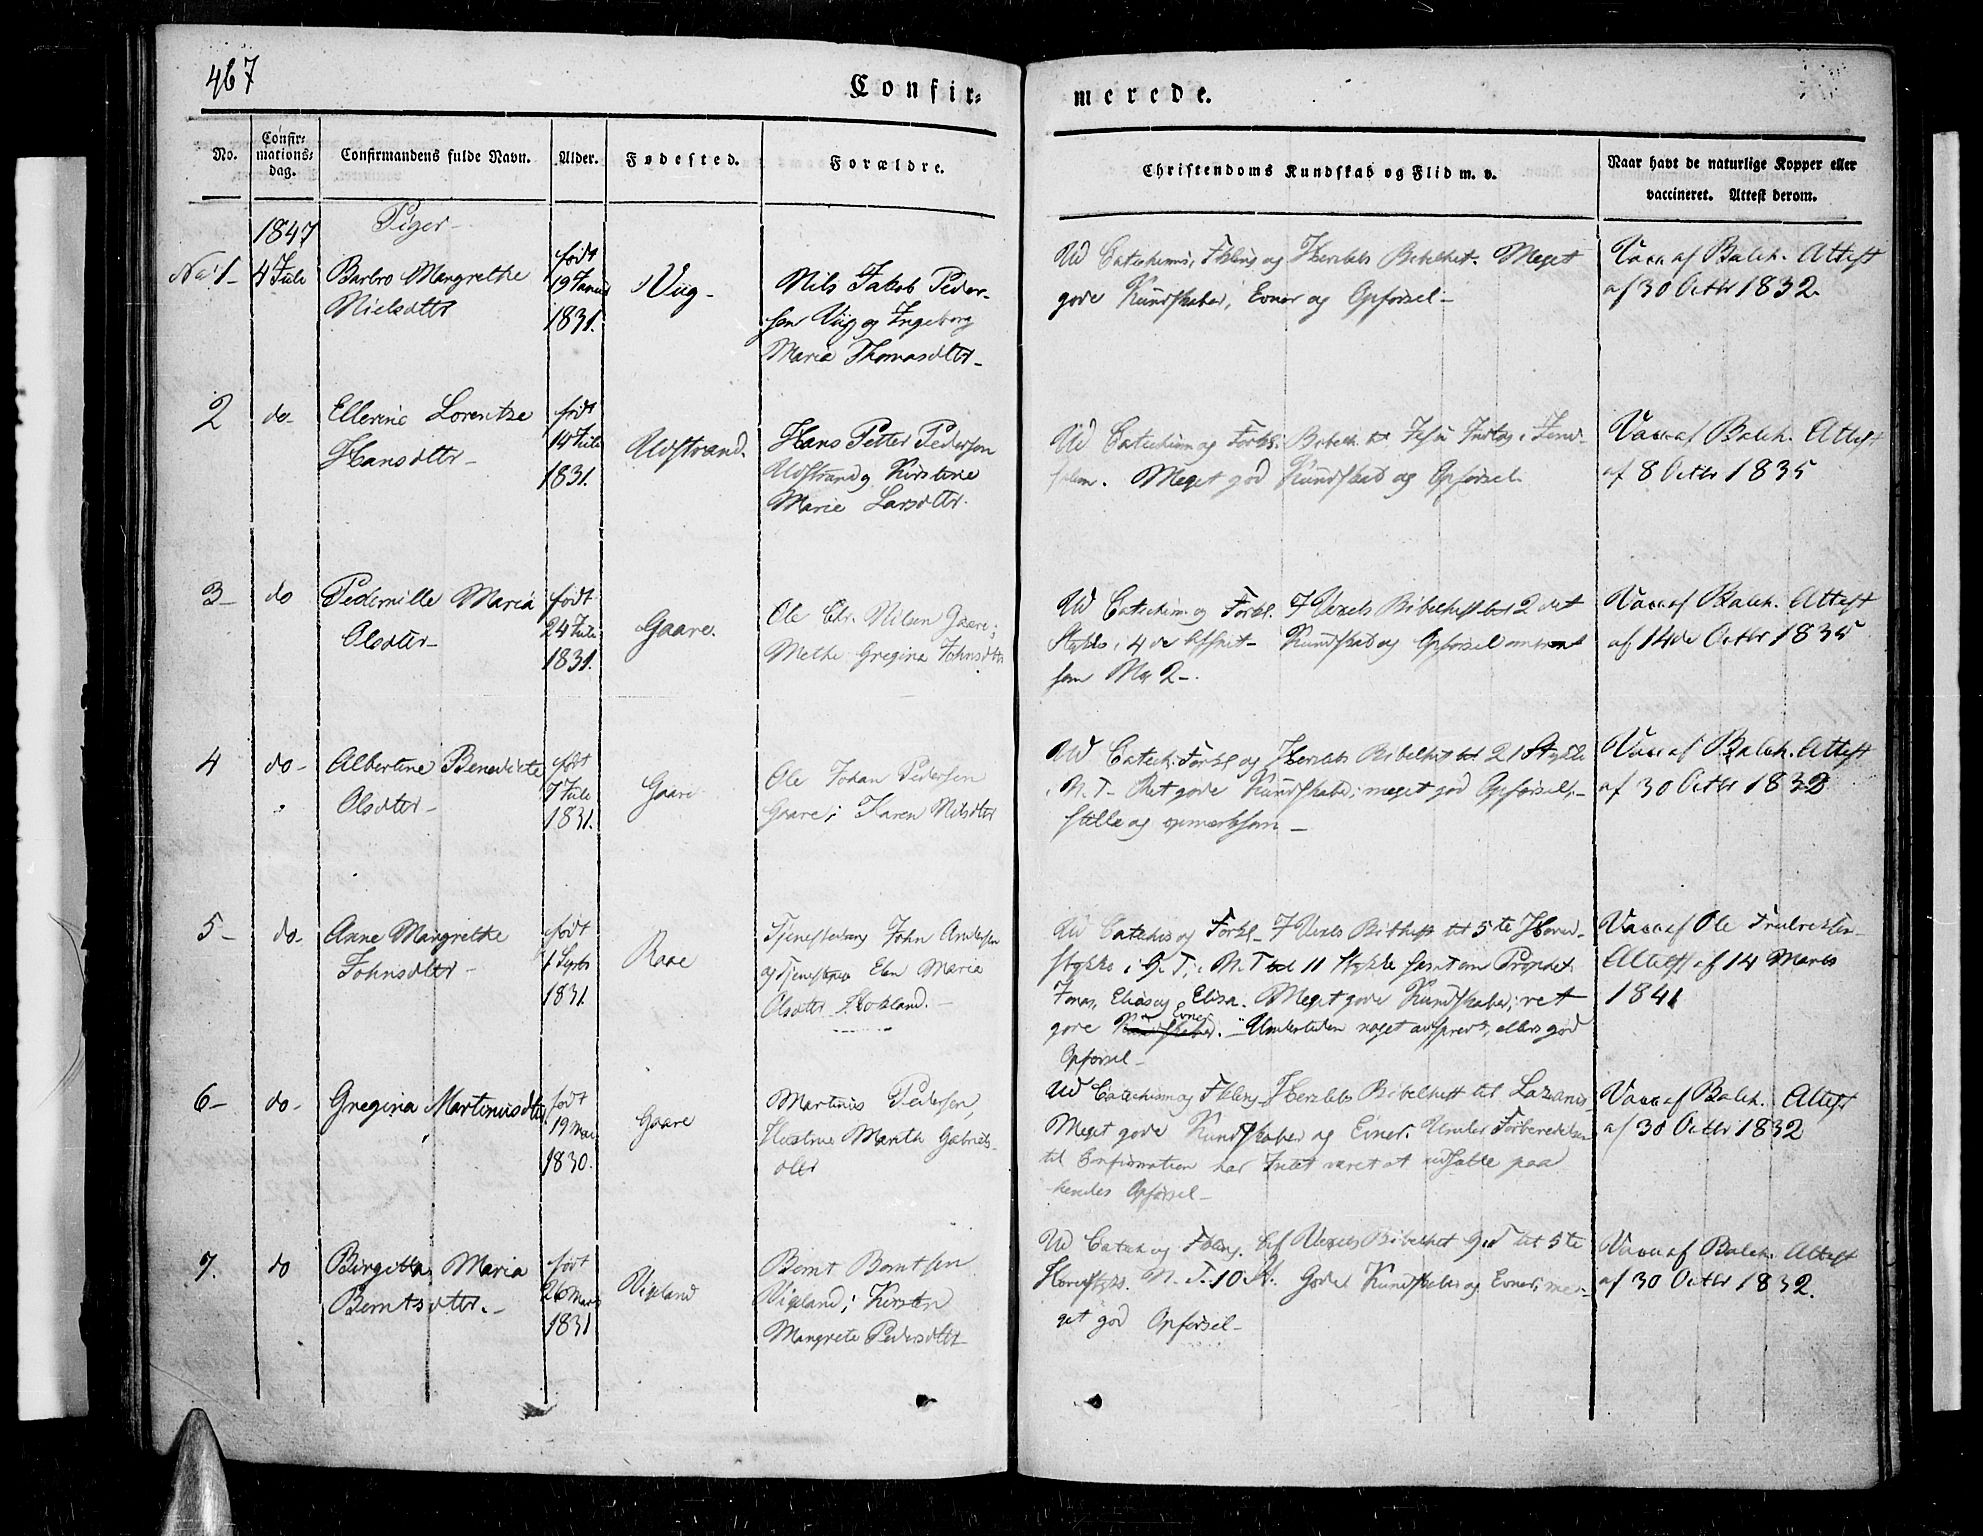 467
Confir-
merede.
No.
Confir-
mations-
dag.
Confirmandens fulde Navn.
Alder.
Fødested.
Forældre.
Christendoms Kundskab og Flid m. v.
Naar havt de naturlige Kopper eller
vaccineret. Attest derom.
1847
Piger-
No 1-
4 Jule
Barbro Margrethe
Nielsdtr
født
19 Januar
1831.
Viig-
Nils Jakob Peder-
sen Viig og Ingeborg
Maria Thomasdtr-
Ud Catechismi, Fklring og Herslebs Bibelhist. Meget
gode Kundskaber, Evner og Opførsel-
Vacc af Balch. Attest
af 30 Octbr 1832.
2
do-
Ellerine Lorentze
Hansdttr-
født
14 Jule
1831.
Udstrand.
Hans Petter Pedersen
Udstrand og Kirstine
Marie Larsdttr.
Ud Catechism og Forkl. Bibelh. til Jesu Indtog i Jeru-
salem. Meget god Kundskab og Opførsel.
Vacc af Balch. Attest
af 8 Octbr 1835
3-
do
Pedernille Maria
Olsdtter-
født
24 Jule
1831.
Gaare.
Ole Chr. Nilsen Gaare;
Methe Gregina Johnsdttr
Ud Catechism og Forkl. J Vexels Bibelhist til 2det
Stykke i 4de Afsnit- Kundskab og Opførsel omtrent
som No 2-.
Vacc af Balch. Attest
af 14de Octbr 1835
4
do-
Albertine Benedikte
Olsdtter-
født
7 Jule
1831.
Gaare
Ole Johan Pedersen
Gaare; Karen Nilsdttr
Ud Catech. Forkl og Herslebs Bibelhist til 21 Stykke
i N. T- Ret gode Kundskaber; meget god Opførsel,-
stille og opmærksom-
Vacc af Balch. Attest
af 30 Octbr 1832
5-
do-
Anne Margrethe
Johnsdtter-
født
1 Septbr
1831.
Raae
Tjenestedreng John Andersen
og Tjenestepige Elen Maria
Olsdtter Hokland.-
Ud Catechis og Forkl- J Vexels Bibhist til 5te Hoved-
stykke i G. T; i N. T til 11 Stykke samt om Prophet
Jonas, Elias og Elisa. Meget gode Kundskaber; ret
gode Evner. Undertiden noget adspredt, ellers god
Opførsel-
Vacc af Ole Fredriksen-
Attest af 14 Marts
1841
6-
do-
Gregina Martinusdtter
født
19 Mai
1830.
Gaare
Martinus Pedersen,
Hustrue Marith Gabriels-
dttr
Ud Catechism og Fklring, Herslebs Bibelhist til Lazarus-
Meget gode Kundskaber og Evner. Under Forberedelsen
til Confirmation har Intet været at udsætte paa
hendes Opførsel-
Vacc af Balch. Attest
af 30 Octbr 1832
7.
do
Birgitta Maria
Berntsdtter.-
født
26 Marts
1831
Vigeland
Bernt Berntsen
Vigeland; Kirsten
Margrete Pedersdttr
Ud Catech og Fklring. Af Vexels Bibelhist G. T til 5te
Hovedstykke. N. T. 10 St. Gode Kundskaber og Evner; me-
get god Opførsel-
Vacc af Balch. Attest
af 30 Octbr 1832.